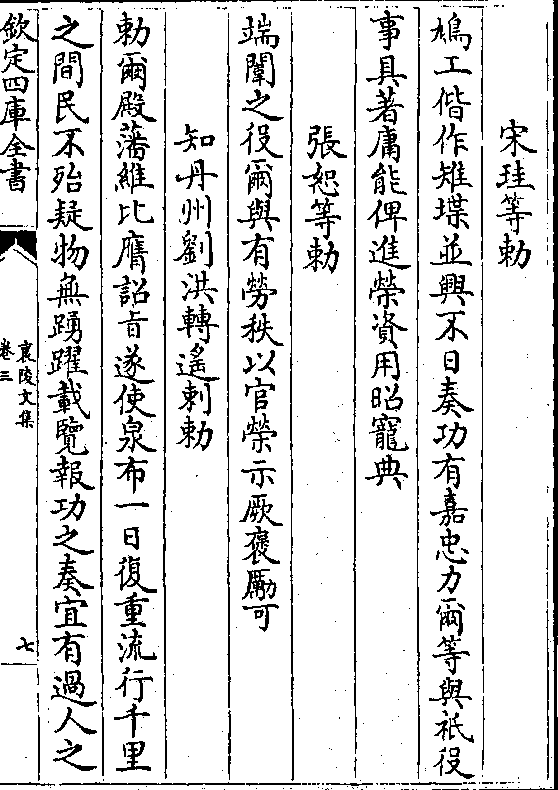 宋珪等勅
鳩工偕作雉堞並興不日奏功有嘉忠力爾等與祇役
事具著庸能俾進榮資用昭寵典
張恕等勅
端闈之役爾與有勞秩以官榮示厥褒勵可
知丹州劉洪轉遙刺勅
勅爾殿藩維比膺詔旨遂使泉布一日復重流行千里
之間民不殆疑物無踴躍載覽報功之奏宜有過人之
欽定四庫全書
襄陵文集
卷三
七